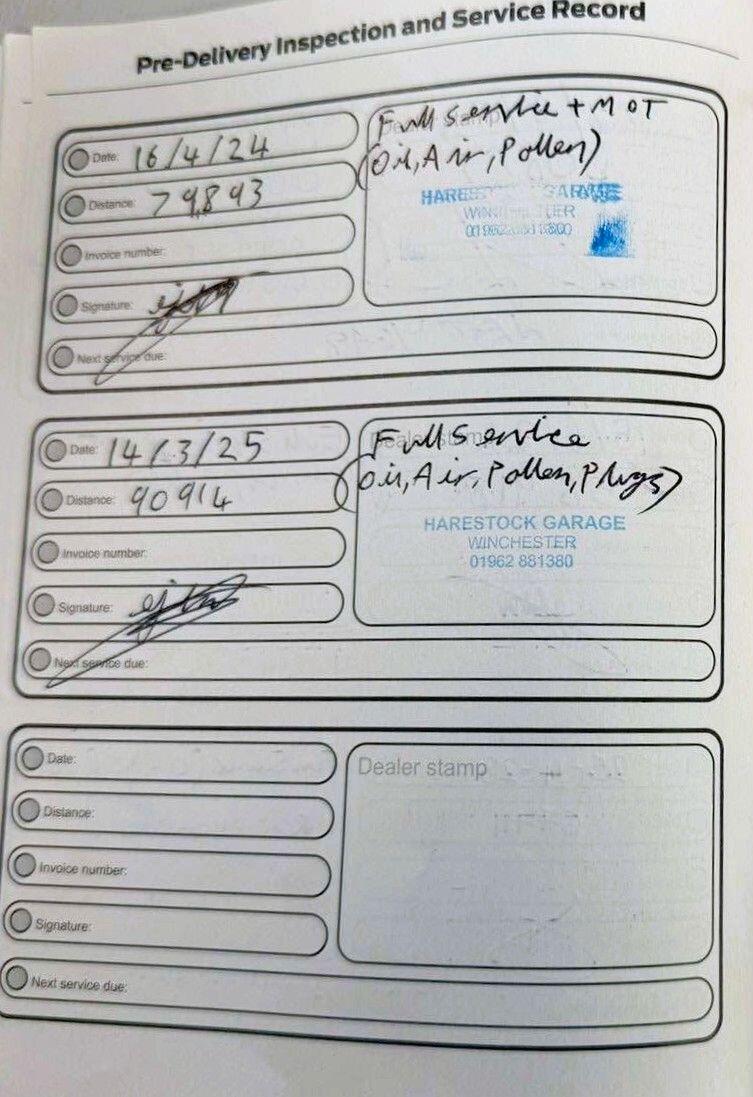 Pre-Delivery Inspection and Service Record
Date: 16/4/24
Distance: 79,893
Invoice number:
Signature:
Next service due:
Full service + MOT
(Oil, Air, Pollen)
HARESTOCK GARAGE
WINCHESTER
Date: 14/3/25
Distance: 90914
Invoice number:
Signature:
Next service due:
Dealer stamp
Full Service
(Oil, Air, Pollen, Plugs)
HARESTOCK GARAGE
WINCHESTER
01962 881380
Date:
Distance:
Invoice number:
Signature:
Next service due:
Dealer stamp